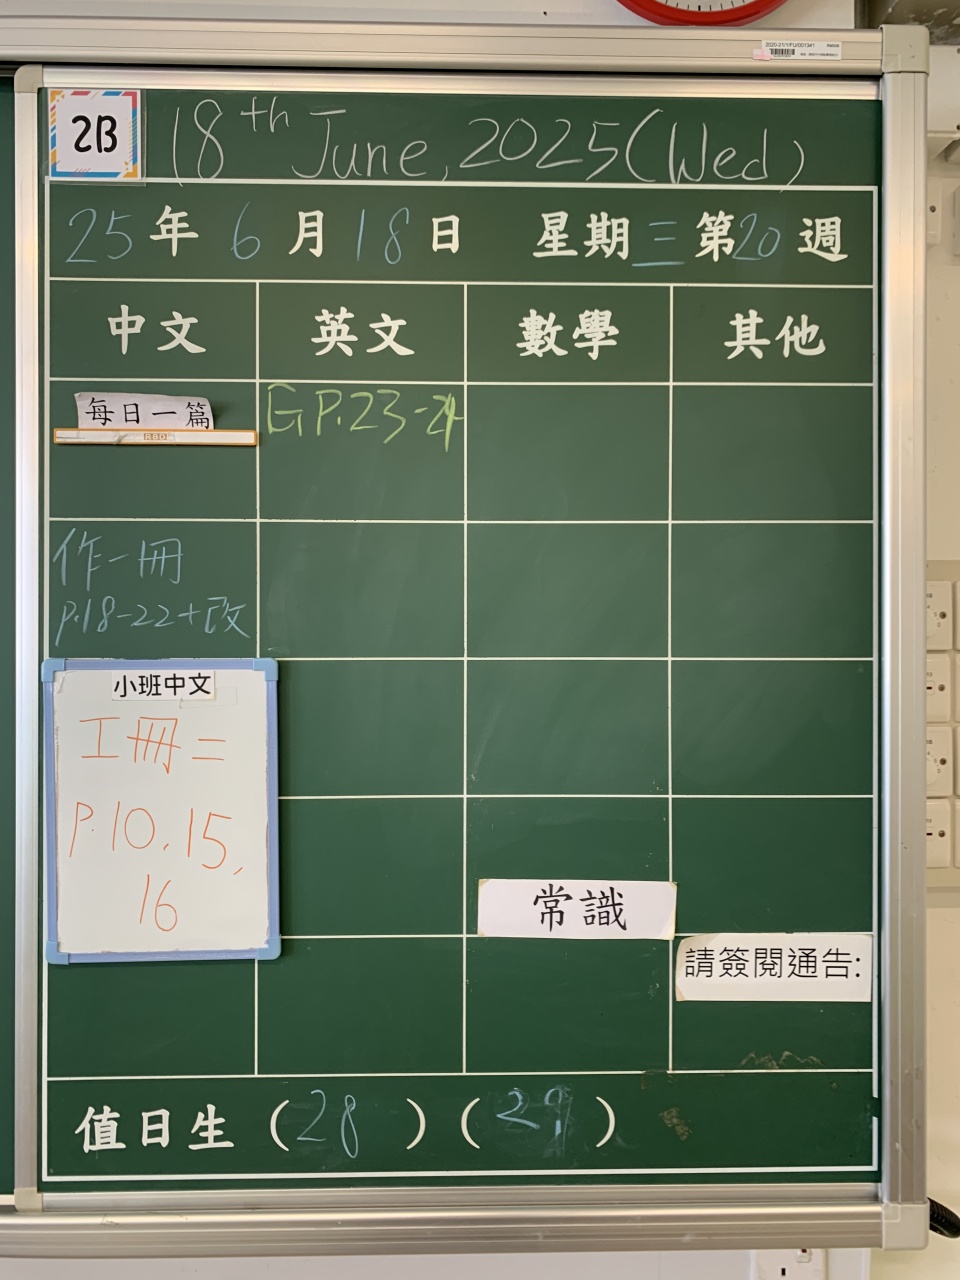 2020-21/1/FU/001341
2B
18th June, 2025 (Wed)
25年6月18日 星期三第20週
中文 英文 數學 其他
每日一篇
RBD
G P.23-24
作一冊
p.18-22+改
小班中文
工冊二
p.10, 15,
16
常識
請簽閱通告:
值日生 (28) (29)